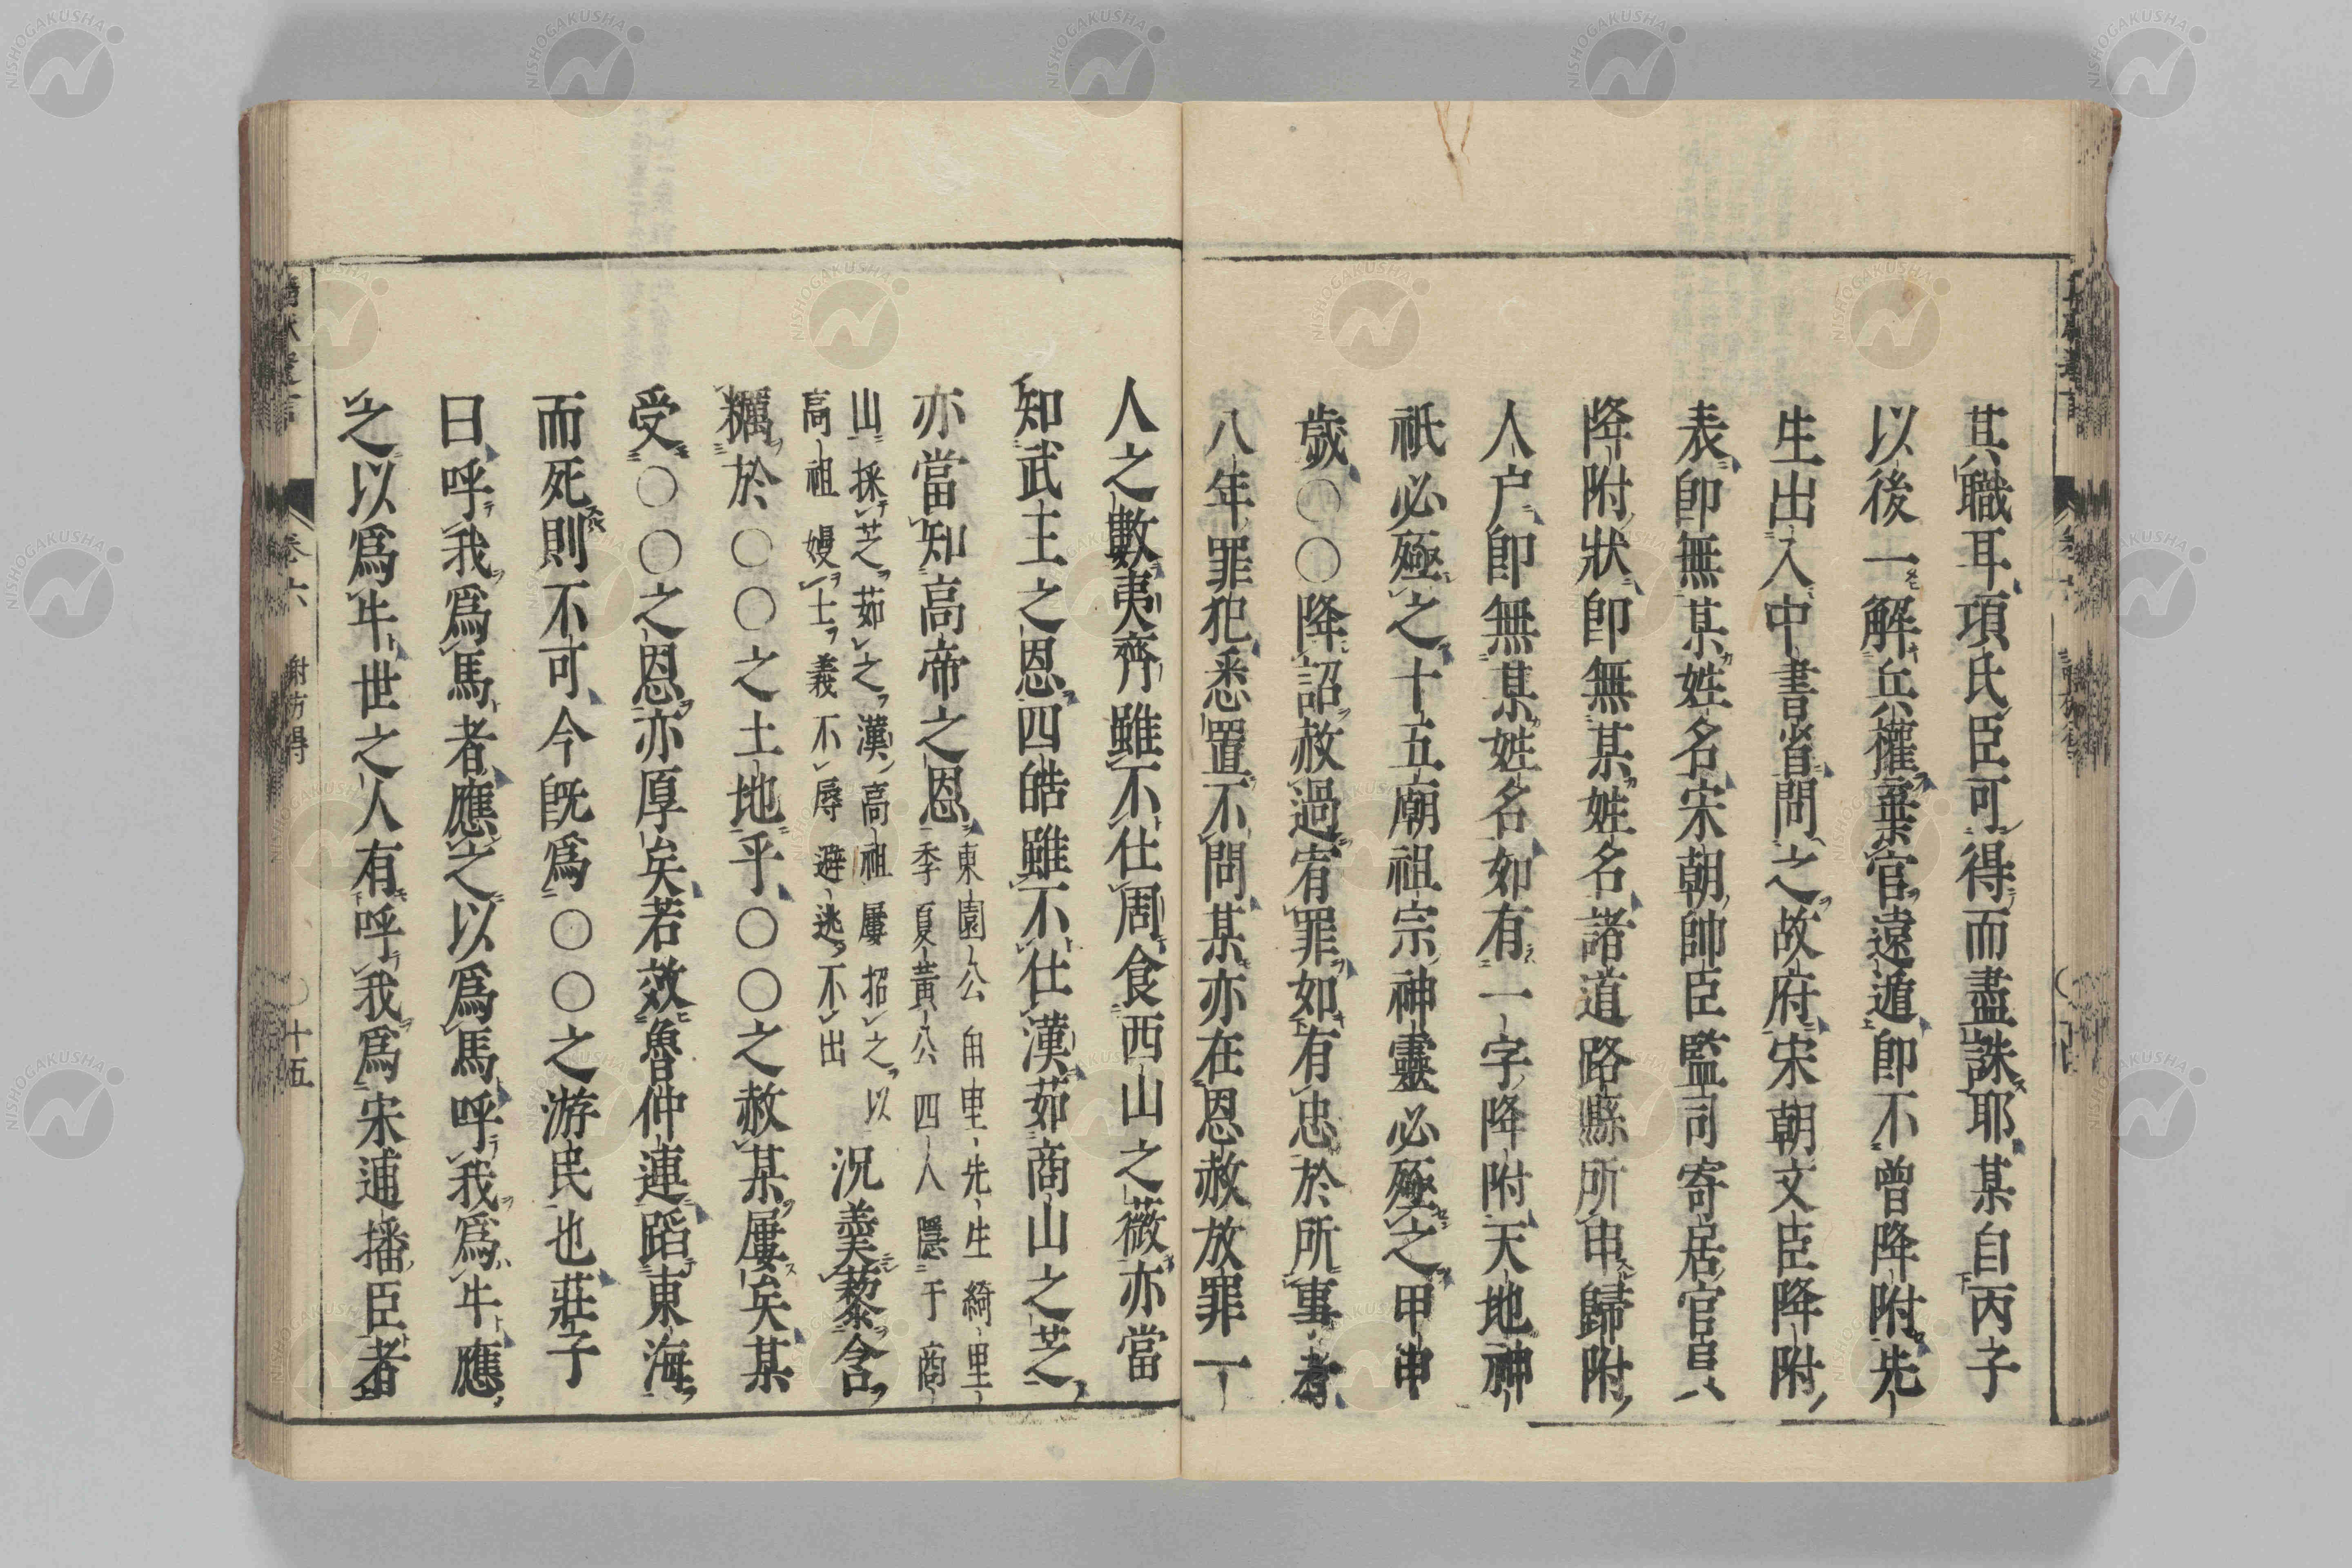 其職耳項氏臣可得而盡誅耶某自丙子
以後一解兵權棄官遠遁即不曾降附先
生出入中書省問之故府宋朝文臣降附
表即無某姓名宋朝帥臣監司寄居官員
降附狀即無某姓名諸道路縣所申歸附
人户即無某姓名如有一字降附天地神
祇必殛之十五廟祖宗神靈必殛之甲申
歲〇〇降詔赦過宥罪如有忠於所事者
八年罪犯悉置不問某亦在恩赦放罪一
人之數夷齊雖不仕周食西山之薇亦當
知武王之恩四皓雖不仕漢茹商山之芝
亦當知高帝之恩東園公甪里先生綺里
季夏黃公四人隱于商
山採芝茹之漢高祖屢招之以
高祖嫚士義不辱避逃不出
況羹藜含
糲於〇〇之土地乎〇〇之赦某屢矣某
受〇〇之恩亦厚矣若效魯仲連蹈東海
而死則不可今既爲〇〇之游民也莊子
曰呼我爲馬者應之以爲馬呼我爲牛應
之以爲牛世之人有呼我爲宋逋播臣者
卷六 謝枋得 十五
NISHOGAKUSHA